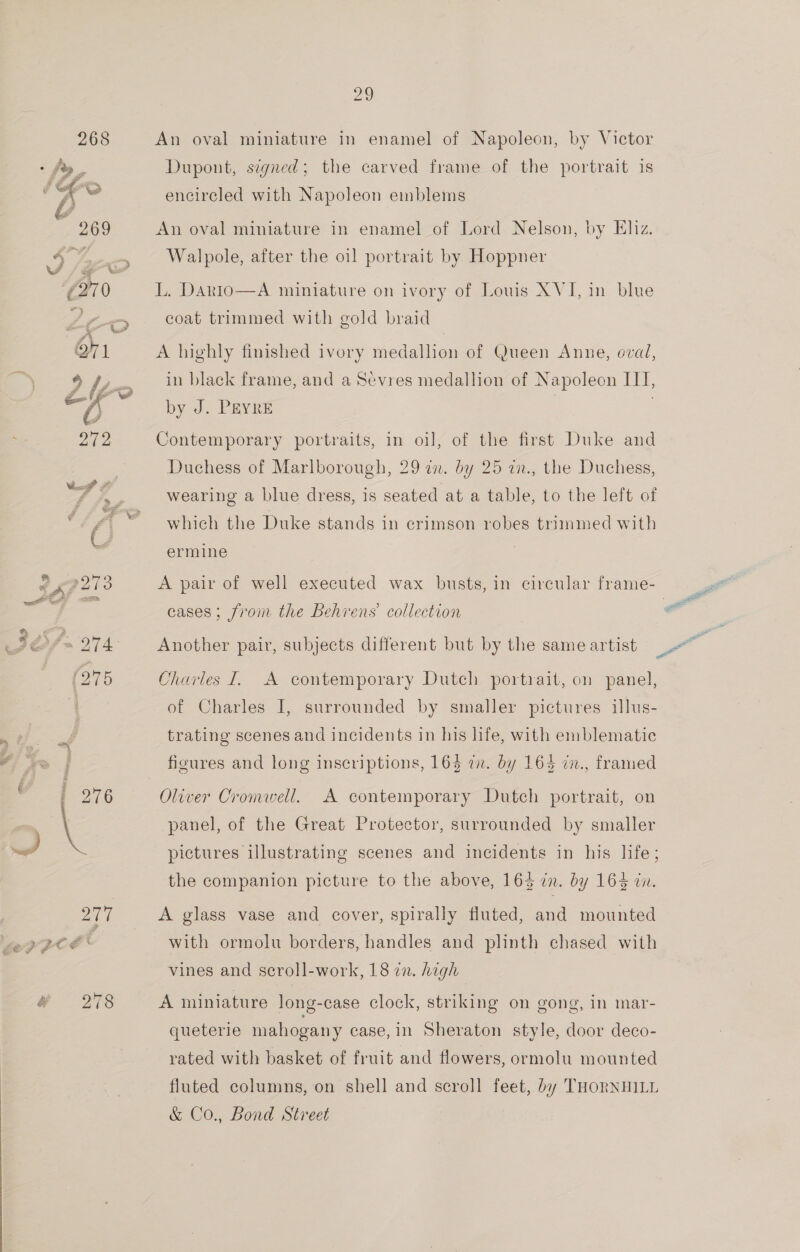 29
268 An oval miniature in enamel of Napoleon, by Victor
Dupont, signed; the carved frame of the portrait is
encircled with Napoleon emblems
269 An oval miniature in enamel of Lord Nelson, by Eliz.
Walpole, after the oil portrait by Hoppner
270 L. DARIO—A miniature on ivory of Louis XVI, in blue
coat trimmed with gold braid
271 A highly finished ivory medallion of Queen Anne, oval,
in black frame, and a Sèvres medallion of Napoleon III,
by J. PEYRE
272 Contemporary portraits, in oil, of the first Duke and
Duchess of Marlborough, 29 in. by 25 in., the Duchess,
wearing a blue dress, is seated at a table, to the left of
which the Duke stands in crimson robes trimmed with
ermine
273 A pair of well executed wax busts, in circular frame-
cases; from the Behrens' collection
274 Another pair, subjects different but by the same artist
275 Charles I. A contemporary Dutch portrait, on panel,
of Charles I, surrounded by smaller pictures illus-
trating scenes and incidents in his life, with emblematic
figures and long inscriptions, 16½ in. by 16½ in., framed
276 Oliver Cromwell. A contemporary Dutch portrait, on
panel, of the Great Protector, surrounded by smaller
pictures illustrating scenes and incidents in his life;
the companion picture to the above, 16½ in. by 16½ in.
277 A glass vase and cover, spirally fluted, and mounted
with ormolu borders, handles and plinth chased with
vines and scroll-work, 18 in. high
278 A miniature long-case clock, striking on gong, in mar-
queterie mahogany case, in Sheraton style, door deco-
rated with basket of fruit and flowers, ormolu mounted
fluted columns, on shell and scroll feet, by THORNHILL
& Co., Bond Street